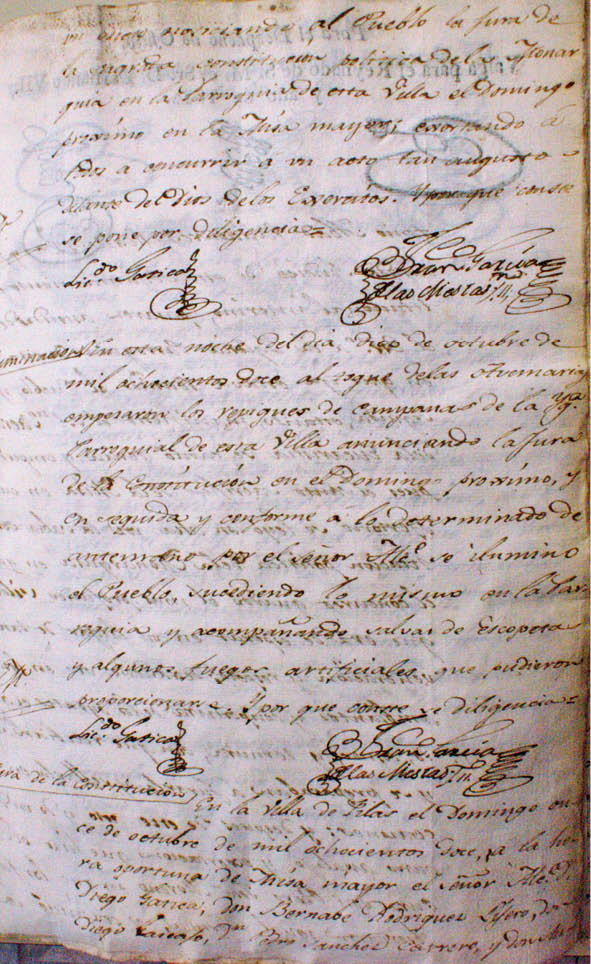 anunciando al Pueblo la Jura de
la sagrada constitucion politica de la Monar
quia en la Parroquia de esta Villa el Domingo
proximo en la Misa mayor; exortando á
todos a concurrir a un acto tan augusto
delante del Dios de los Exercitos. Y por que conste
se pone por diligencia=
Lic.do Garica
Fran.co Garcia
de las Mestas
En esta noche del dia diez de octubre de
mil ochocientos doce al toque de las Avemarias
empezaron los repiques de campanas de la Yg.a
Parroquial de esta Villa anunciando la Jura
de la Constitución en el Domingo proximo, y
en seguida y conforme á lo determinado de
antemano por el señor Alc.e se ilumino
el Pueblo, sucediendo lo mismo en la Par
roquia y acompañando salvas de Escopetas
y algunos fuegos artificiales que pudieron
proporcionarse. Y por que conste se diligencia=
Lic.do Garica
Fran.co Garcia
de las Mestas
Jura de la Constitucion
En la Villa de Pilas el Domingo on
ce de octubre de mil ochocientos doce, a la ho
ra oportuna de Misa mayor el señor Alc.e D.
Diego Garica, don Bernabe Rodriguez don
Diego D.n Pedro Sanchez y don